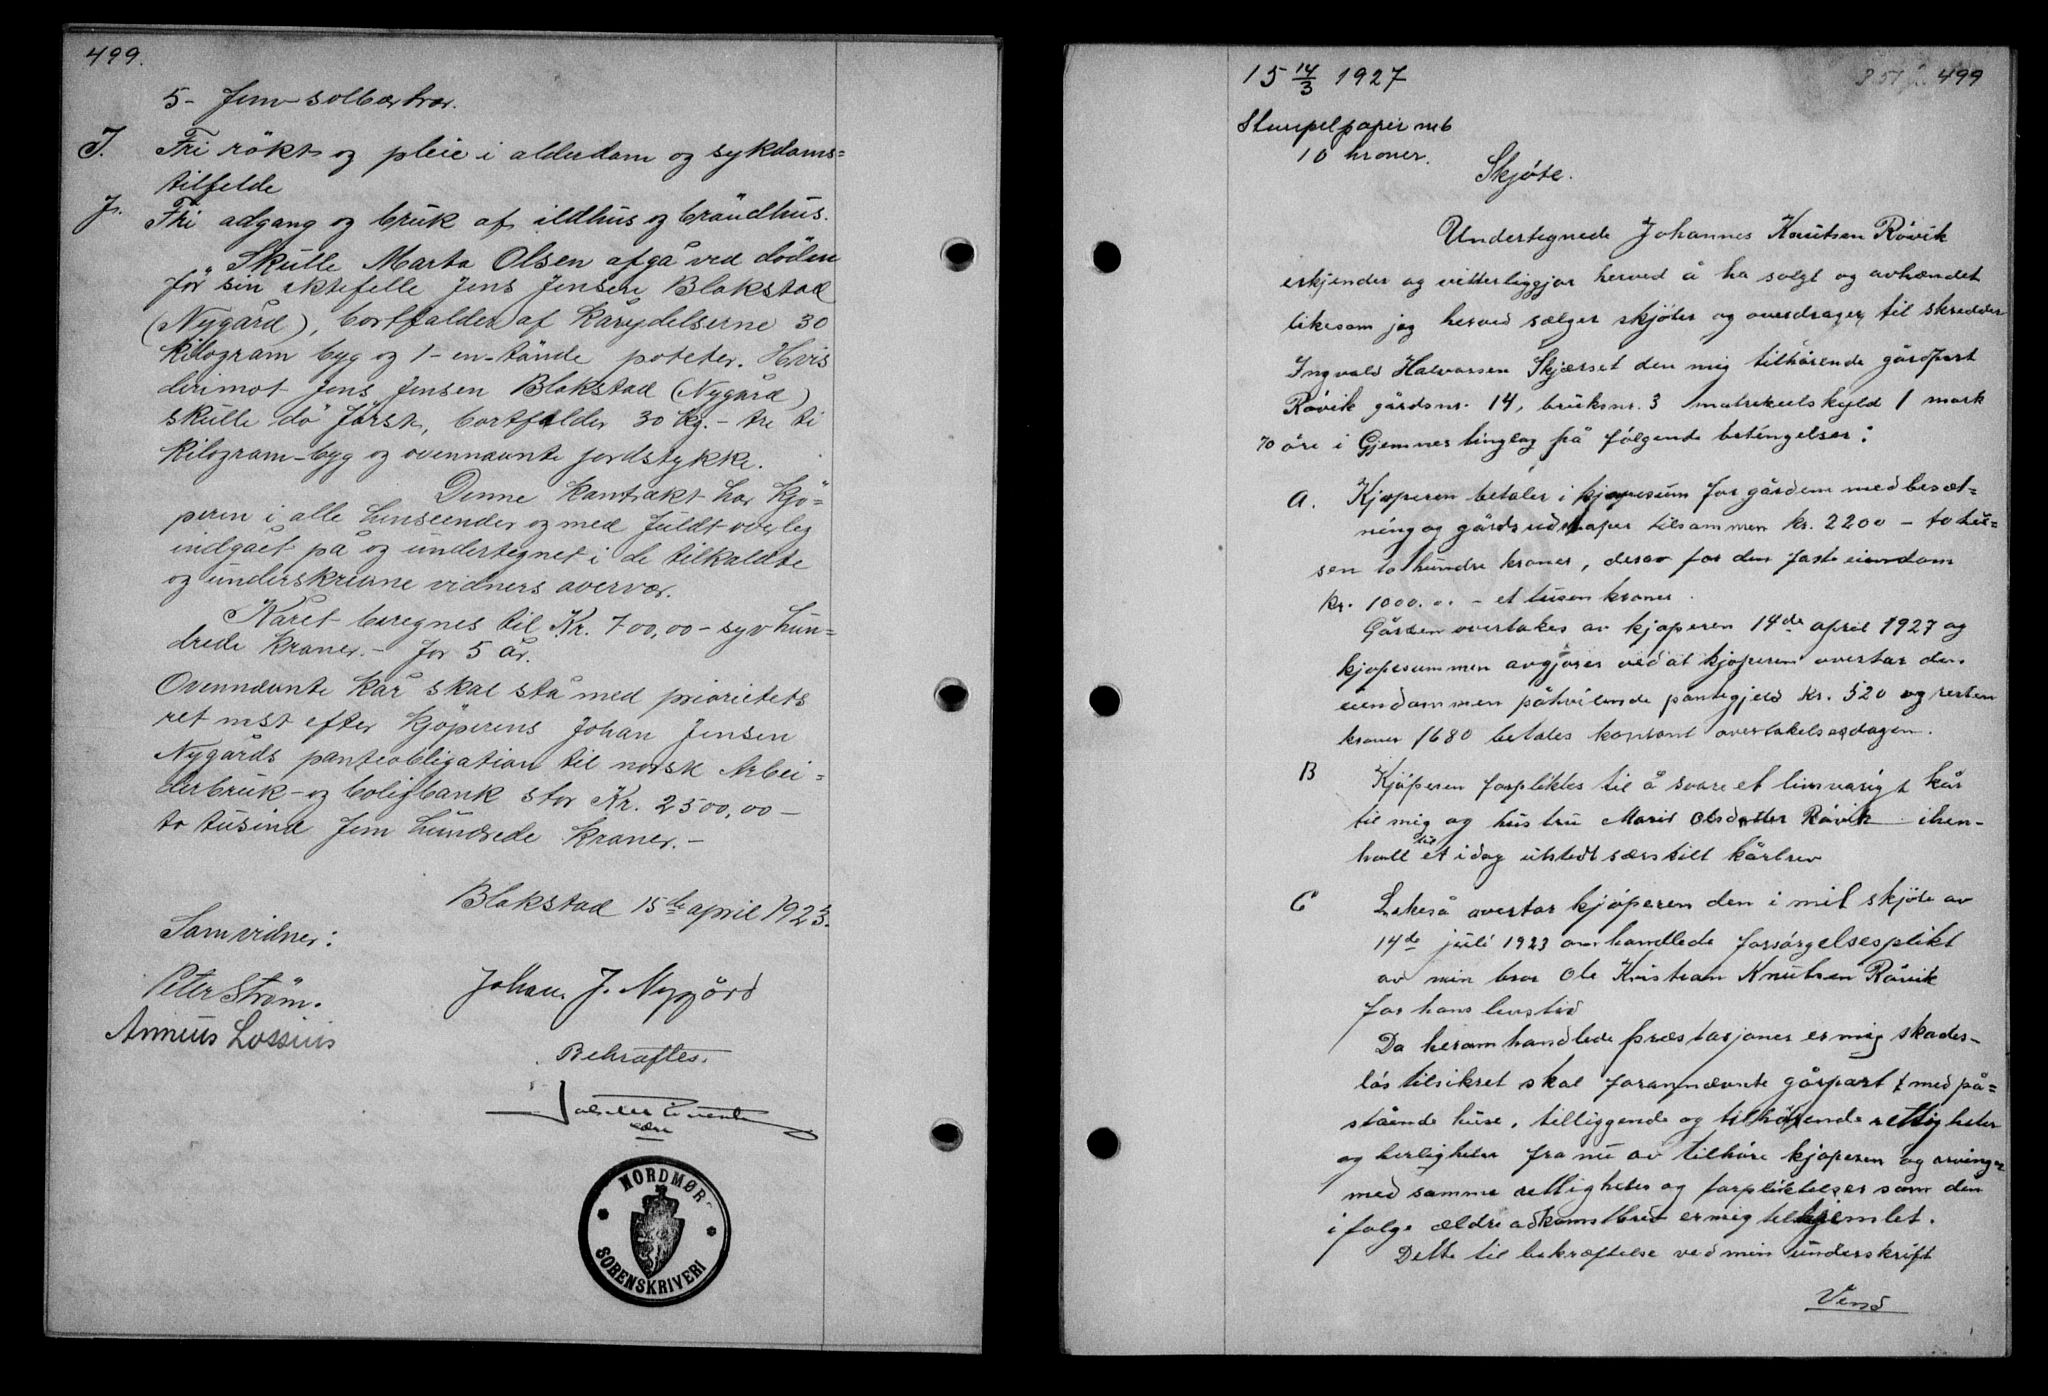 499.
5 - fem solbærtrær.
I. Fri røkt og pleie i alderdom og sykdoms=
tilfelde
J. Fri adgang og bruk af ildhus og brøndhus.
Skulle Marta Olsen afgå ved døden
før sin ektefelle Jens Jensen Blakstad
(Nygård), bortfalder af kårydelserne 30
kilogram byg og 1 - en - tønde poteter. Hvis
derimot Jens Jensen Blakstad (Nygård)
skulle dø først, bortfalder 30 kg. - tre ti
kilogram - byg og ovennævnte jordstykke.
Denne kontrakt har kjø=
peren i alle henseender og med fuldt overleg
indgået på og undertegnet i de tilkaldte
og underskrevne vidners overvær.
Kåret beregnes til Kr. 700,00 - syv hun=
drede kroner. - for 5 år.
Ovennævnte kår skal stå med prioritets
ret næst efter kjøperens Johan Jensen
Nygårds panteobligation til norsk Arbei=
derbruk - og boligbank stor Kr. 2500,00 -
to tusind fem hundrede kroner. -
Blakstad 15de april 1923.
Som vidner:
Peter Strøm.
Johan J. Nygård
Annæus Lossius
Bekræftes.
NORDMØR
SORENSKRIVERI
15 14/3 1927
499
Stempelpapir mrk
10 kroner.
Skjøte.
Undertegnede Johannes Knutsen Røvik
erkjender og vitterliggjør herved å ha solgt og avhændet
likesom jeg herved sælger skjøter og overdrager til skredder
Ingvald Halvorsen Skjærset den mig tilhørende gårdpart
Røvik gårdsnr. 14, bruksnr. 3 matrikulskyld 1 mark
70 øre i Gjemnes tinglag på følgende betingelser:
A. Kjøperen betaler i kjøpesum for gården med besæt=
ning og gårdsredskaper tilsammen kr. 2200 - to tu=
sen to hundre kroner, derav for den faste eiendom
kr. 1000.00 - et tusen kroner.
Gården overtakes av kjøperen 14de april 1927 og
kjøpesummen avgjøres ved at kjøperen overtar den
eiendommen påhvilende pantegjeld kr. 520 og resten
kroner 1680 betales kontant overtakelsesdagen.
B Kjøperen forpliktes til å svare et livsvarigt kår
til mig og hustru Marit Olsdatter Røvik ihen-
hold til et idag utstedt særskilt kårbrev
C Likeså overtar kjøperen den i mit skjøte av
14de juli 1923 omhandlede forsørgelsesplikt
av min bror Ole Kristian Knutsen Røvik
for hans livstid
Da heromhandlede præstasjoner er mig skades-
løs tilsikret skal forannævnte gårpart med på=
stående huse, tilliggende og tilhørende rettigheter
og herligheter fra nu av tilhøre kjøperen og arvinger
med samme rettigheter og forpliktelser som den
i følge ældre adkomstbrev er mig tilhjemlet.
Dette til bekræftelse ved min underskrift
Vend